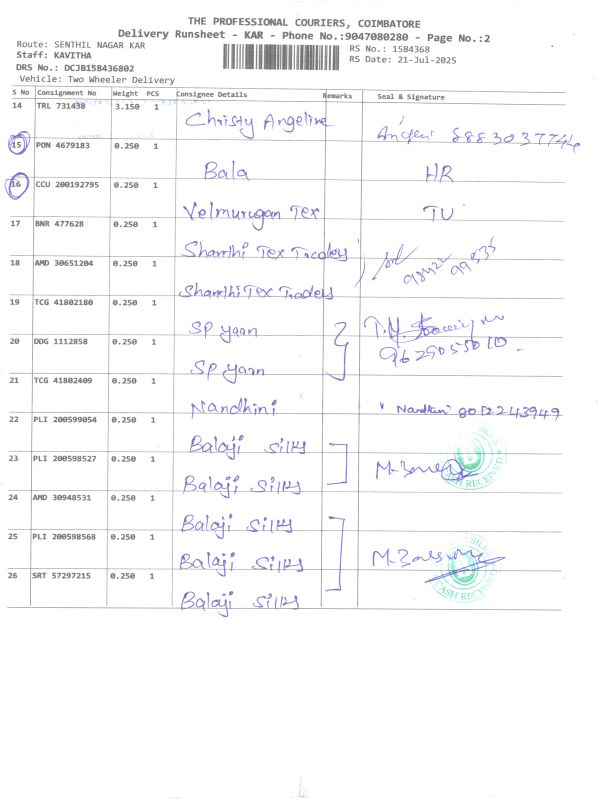 THE PROFESSIONAL COURIERS, COIMBATORE
Delivery Runsheet - KAR - Phone No.:9047080280 - Page No.:2
Route: SENTHIL NAGAR KAR
RS No.: 1584368
Staff: KAVITHA
RS Date: 21-Jul-2025
DRS No.: DCJB158436802
Vehicle: Two Wheeler Delivery
S No Consignment No Weight PCS Consignee Details Remarks Seal & Signature
14 TRL 731438 3.150 1 Christy Angeline 8883037744
15 PON 4679183 0.250 1 Bala HR
16 CCU 200192795 0.250 1 Velmurugan Tex TU
17 BNR 477628 0.250 1 Shanthi Tex Traders
18 AMD 30651204 0.250 1 Shanthi Tex Traders
19 TCG 41802180 0.250 1 SP yarn
20 DDG 1112858 0.250 1 SP yarn
21 TCG 41802409 0.250 1 Nandhini
22 PLI 200599054 0.250 1 Balaji silks
23 PLI 200598527 0.250 1 Balaji silks
CASH RECEIVED
24 AMD 30948531 0.250 1 Balaji silks
25 PLI 200598568 0.250 1 Balaji silks
26 SRT 57297215 0.250 1 Balaji silks
CASH RECEIVED